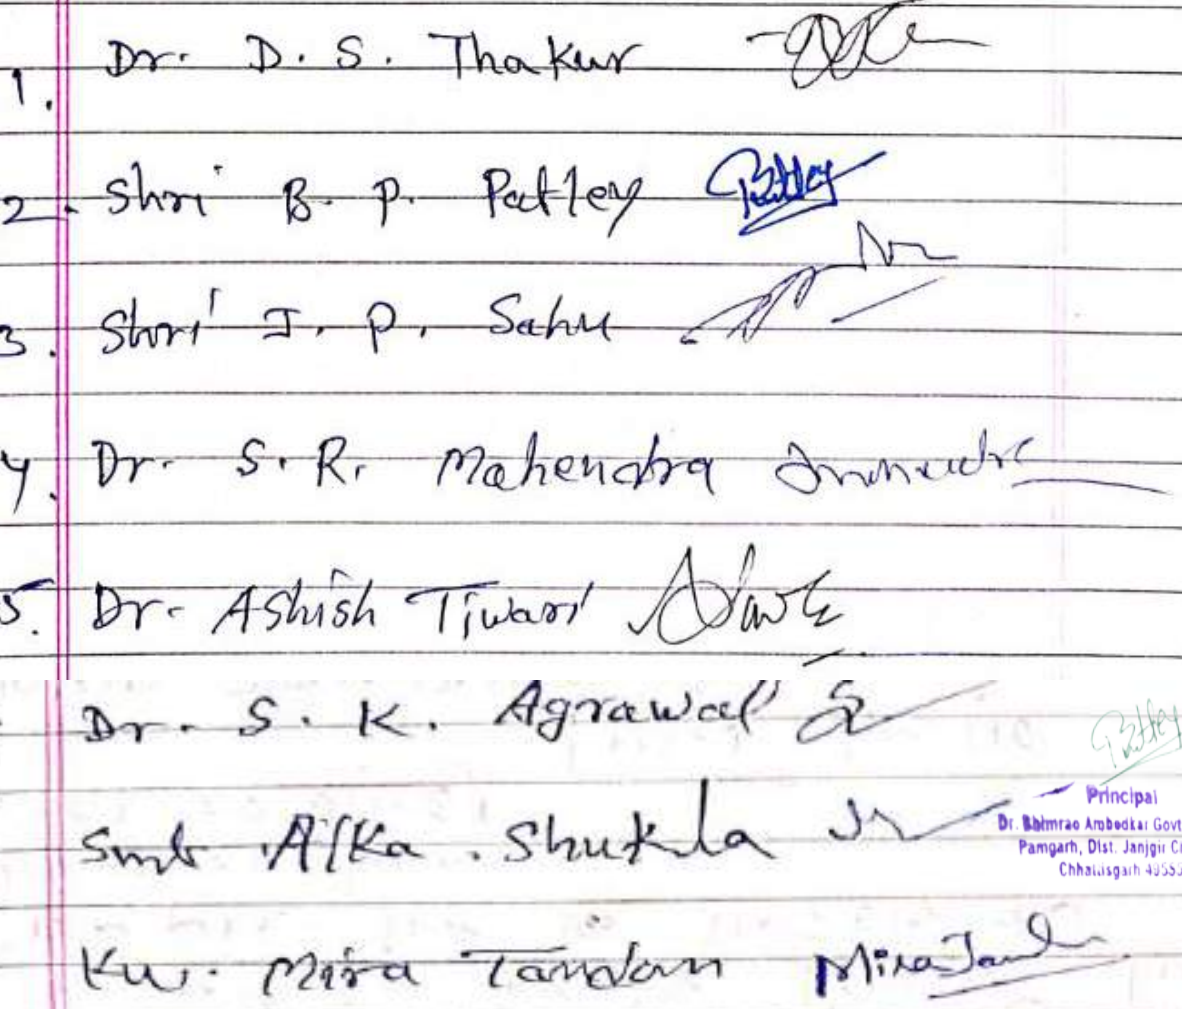 1. Dr. D. S. Thakur
2. Shri B. P. Patley Patley
3. Shri J. P. Sahu
4. Dr. S. R. Mahendra
5. Dr. Ashish Tiwari
Dr. S. K. Agrawal
Smt Alka Shukla
Ku. Mira Tandan Mira
Patley
Principal
Dr. Bhimrao Ambedkar Govt
Pamgarh, Dist. Janjgir
Chhattisgarh 49555